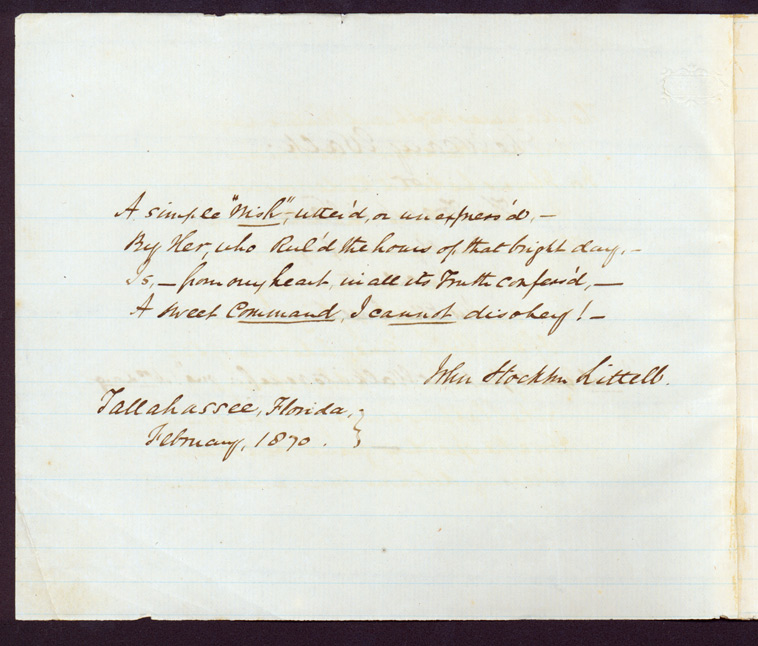 A simple "Wish", utter'd, or unexpress'd, —
By Her, who Rul'd the hours of that bright day, —
Is, — from my heart, in all its Truth confess'd, —
A sweet Command, I cannot disobey! —
John Stockton Littell.
Tallahassee, Florida,
February, 1870.